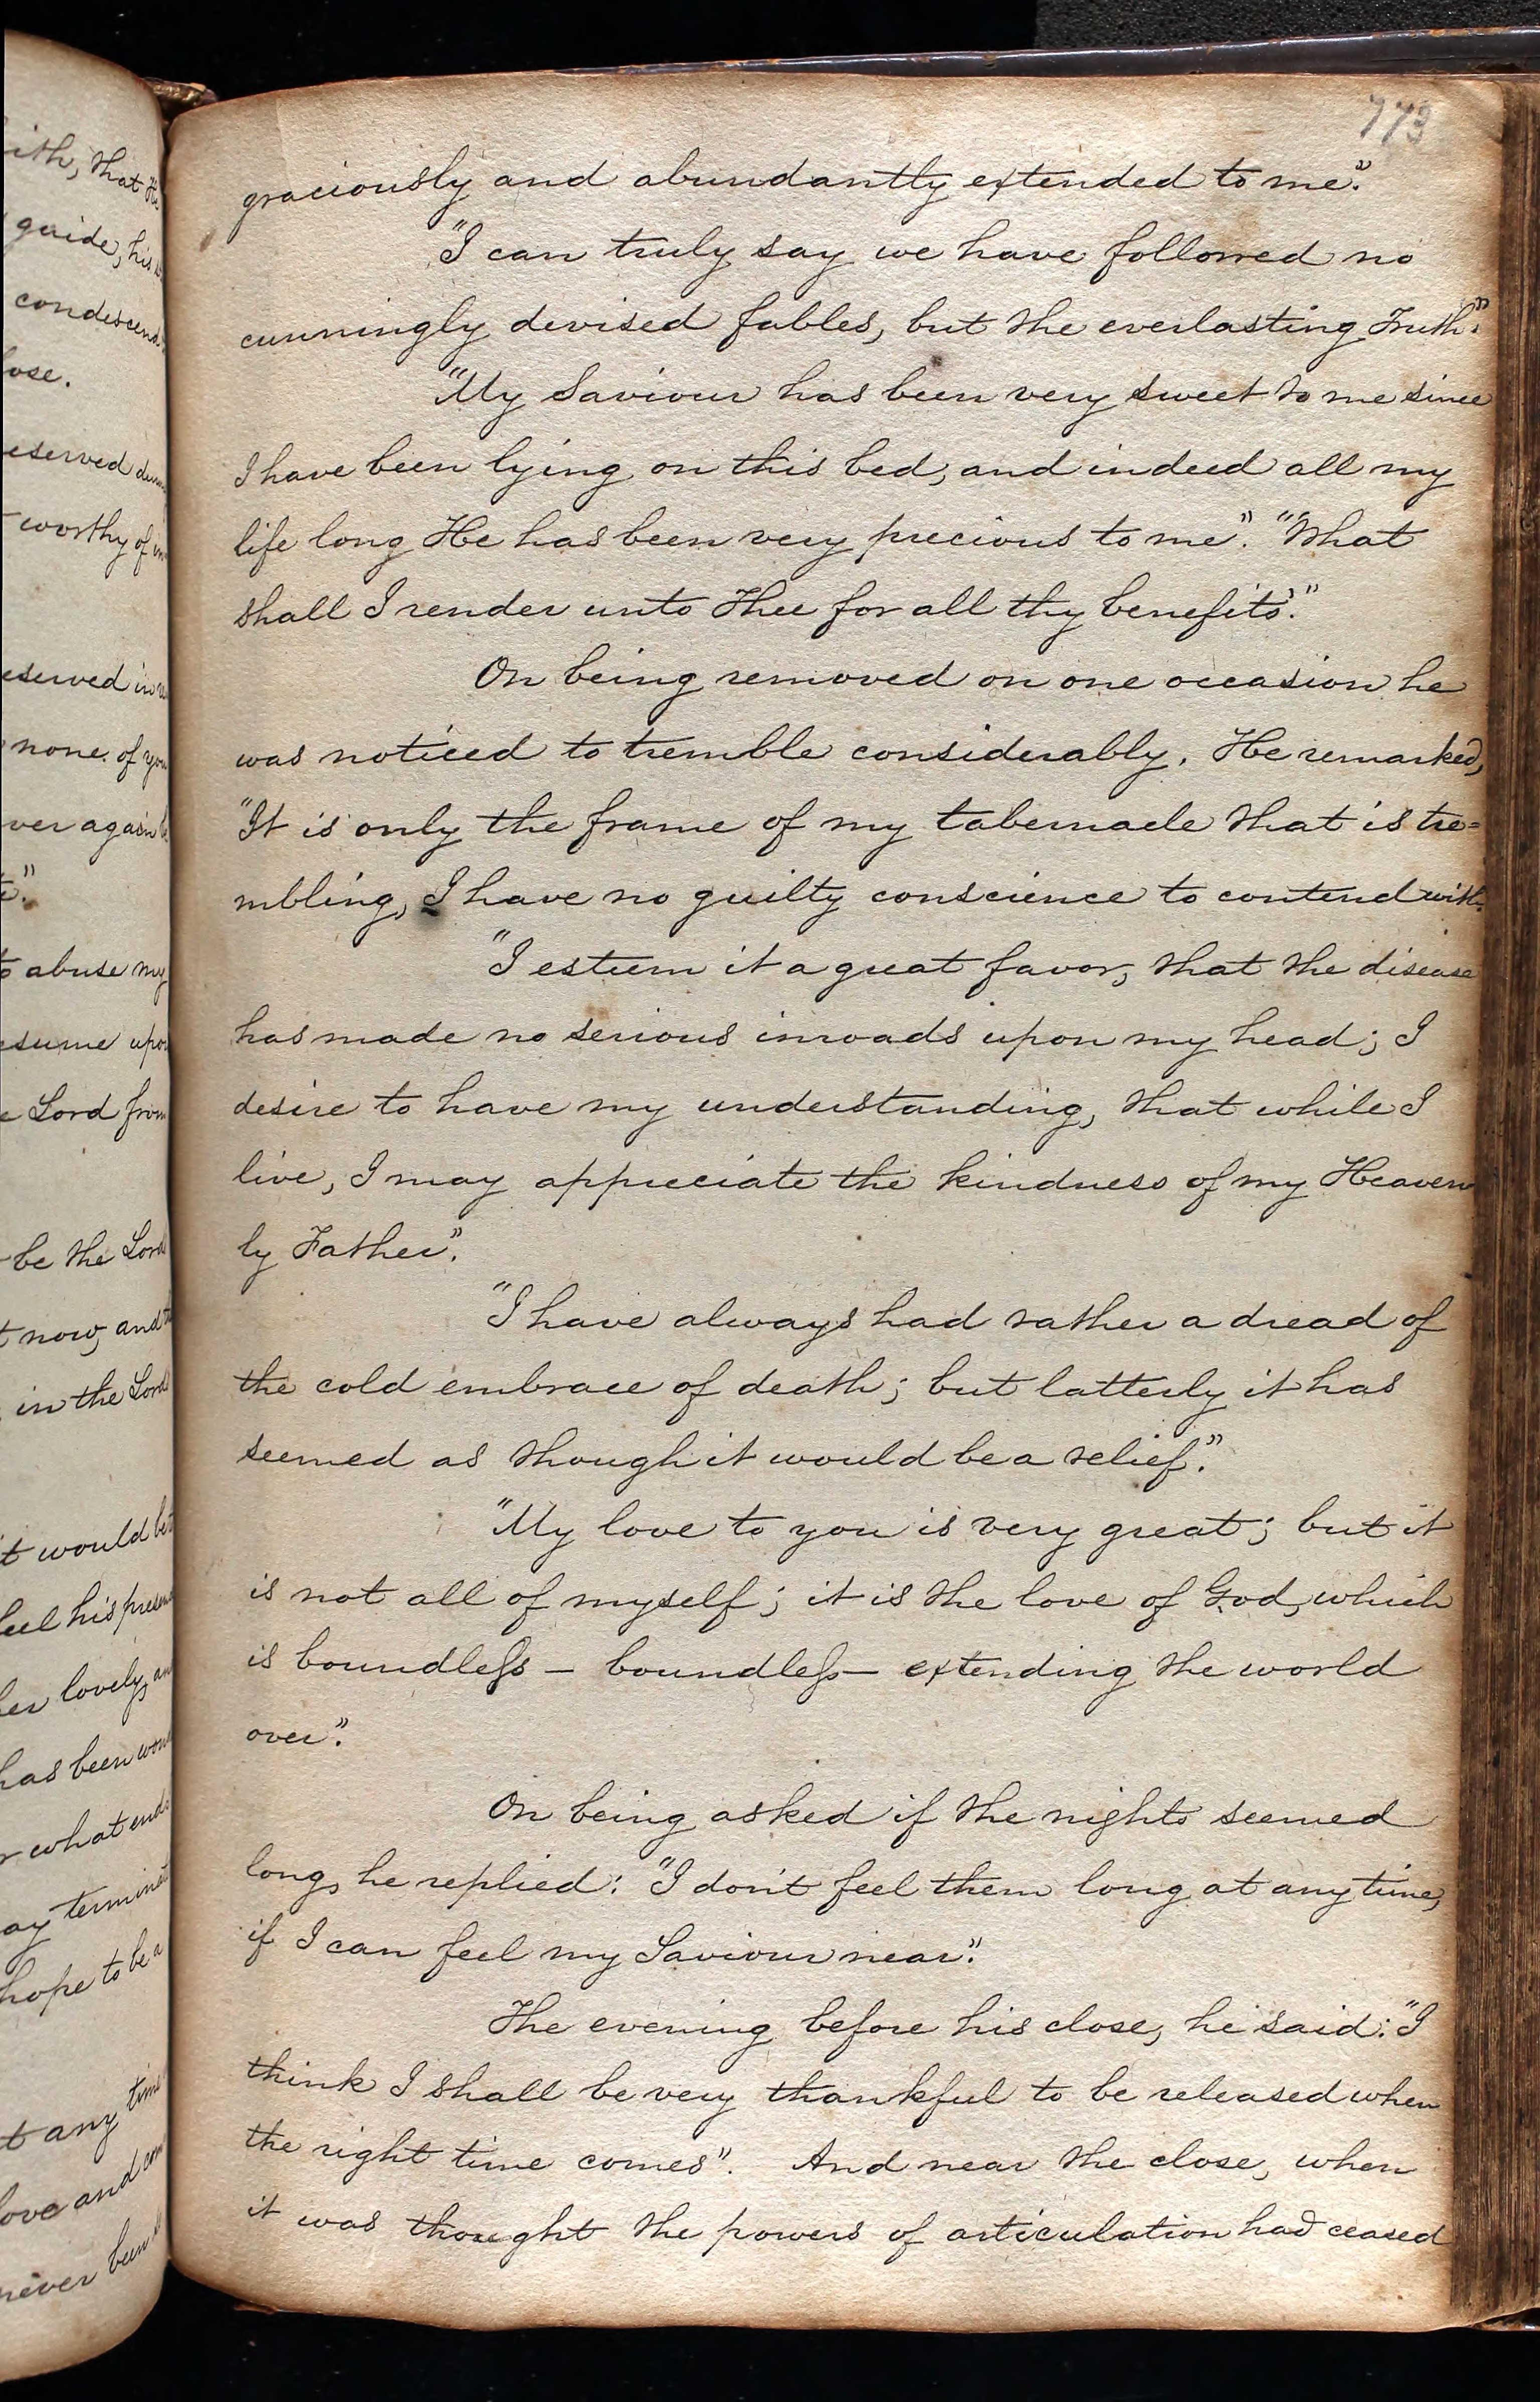 773
graciously and abundantly extended to me".
"I can truly say we have followed no
cunningly devised fables, but the everlasting Truth."
"My Saviour has been very sweet to me since
I have been lying on this bed, and indeed all my
life long He has been very precious to me". "What
shall I render unto Thee for all thy benefits."
On being removed on one occasion he
was noticed to tremble considerably. He remarked,
"It is only the frame of my tabernacle that is tre=
mbling, I have no guilty conscience to contend with."
"I esteem it a great favor, that the disease
has made no serious inroads upon my head; I
desire to have my understanding, that while I
live, I may appreciate the kindness of my Heaven
ly Father".
"I have always had rather a dread of
the cold embrace of death; but latterly it has
seemed as though it would be a relief."
"My love to you is very great; but it
is not all of myself; it is the love of God, which
is boundless – boundless – extending the world
over".
On being asked if the nights seemed
long, he replied: "I don't feel them long at any time,
if I can feel my Saviour near".
The evening before his close, he said: "I
think I shall be very thankful to be released when
the right time comes". And near the close, when
it was thought the powers of articulation had ceased
ith, that
guide, his
condescend
ose.
eserved
worthy of
eserved in
none of you
ver again
e".
to abuse my
esume upon
e Lord from
be the Lord
t now, and
in the Lord
t would be
eel his
er lovely,
has been
what
ay
hope to be a
t any time
ove and
never been